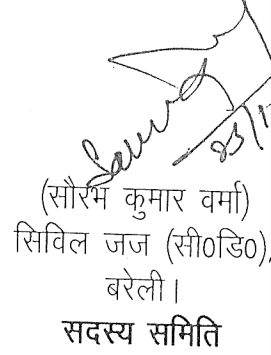 (सौरभ कुमार वर्मा)
सिविल जज (सी0डि0),
बरेली।
सदस्य समिति